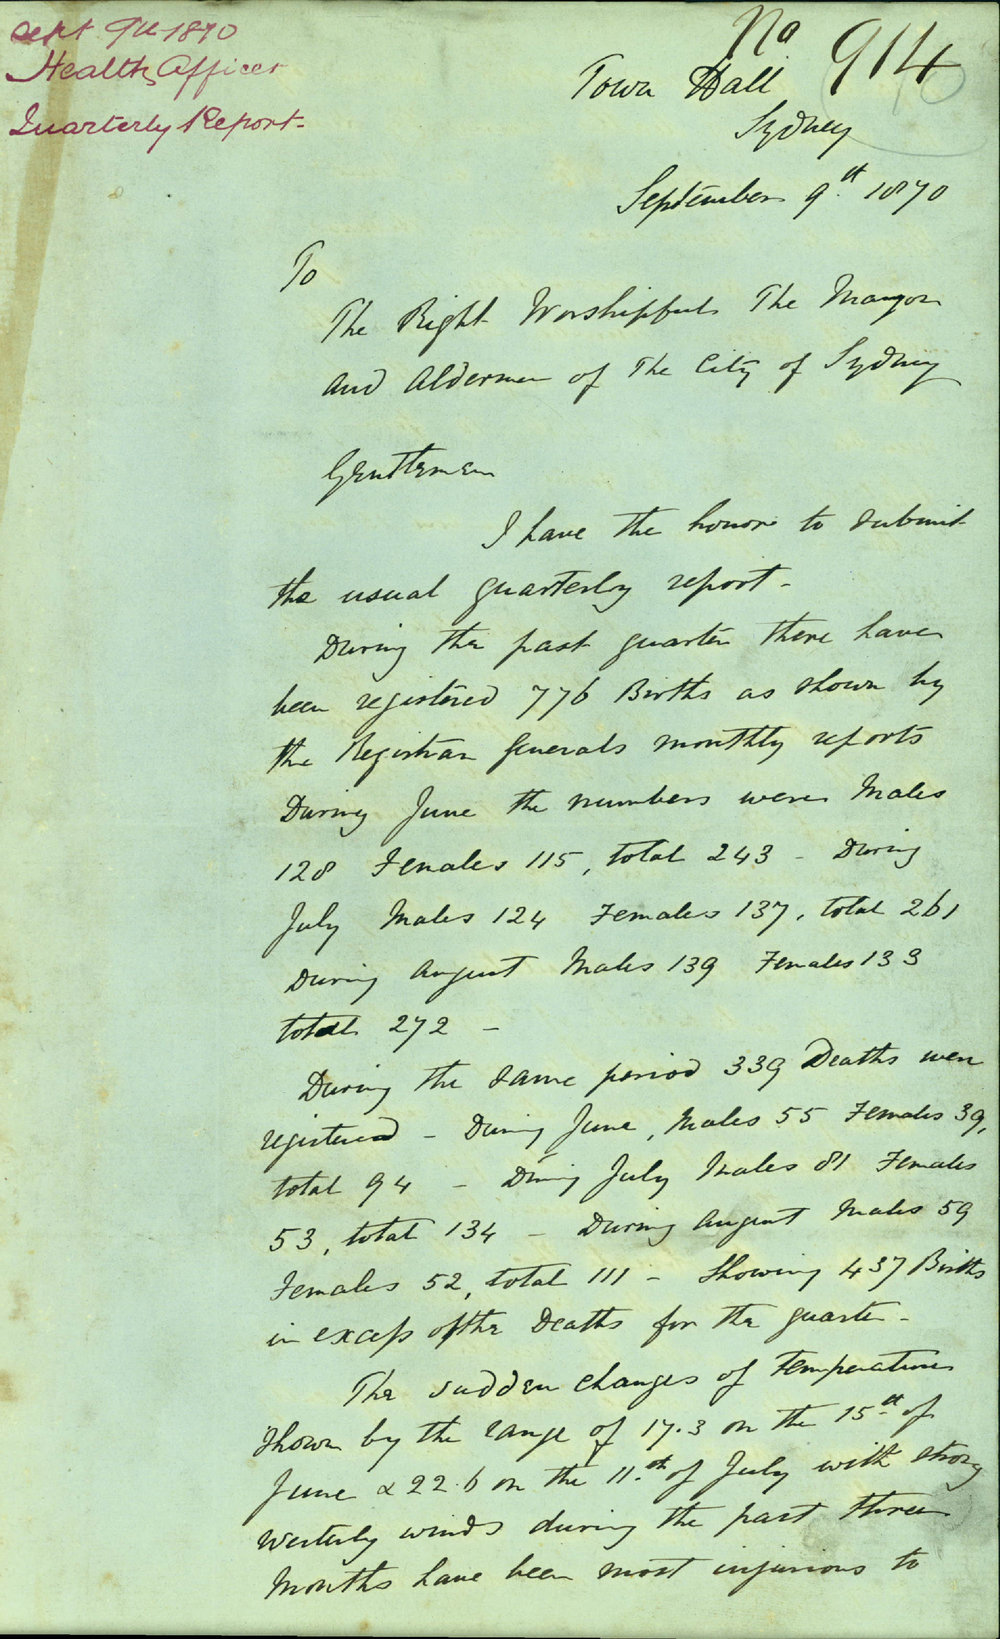 Sept 9th 1870
Health Officer
Quarterly Report-
No 914
Town Hall
Sydney
September 9th 1870
To
The Right Worshipful The Mayor
and Aldermen of The City of Sydney
Gentlemen
I have the honor to submit
the usual quarterly report-
During the past quarter there have
been registered 776 Births as shown by
the Registrar Generals monthly reports
During June the numbers were Males
128 Females 115, total 243 - During
July Males 124 Females 137, total 261
During August Males 139 Females 133
total 272 -
During the same period 339 Deaths were
registered - During June, Males 55 Females 39,
total 94 - During July Males 81 Females
53, total 134 - During August Males 59
Females 52, total 111 - Showing 437 Births
in excess of the Deaths for the quarter -
The sudden changes of temperature
shown by the range of 17.3 on the 15th of
June & 22.6 on the 11th of July with strong
Westerly winds during the past three
Months have been most injurious to